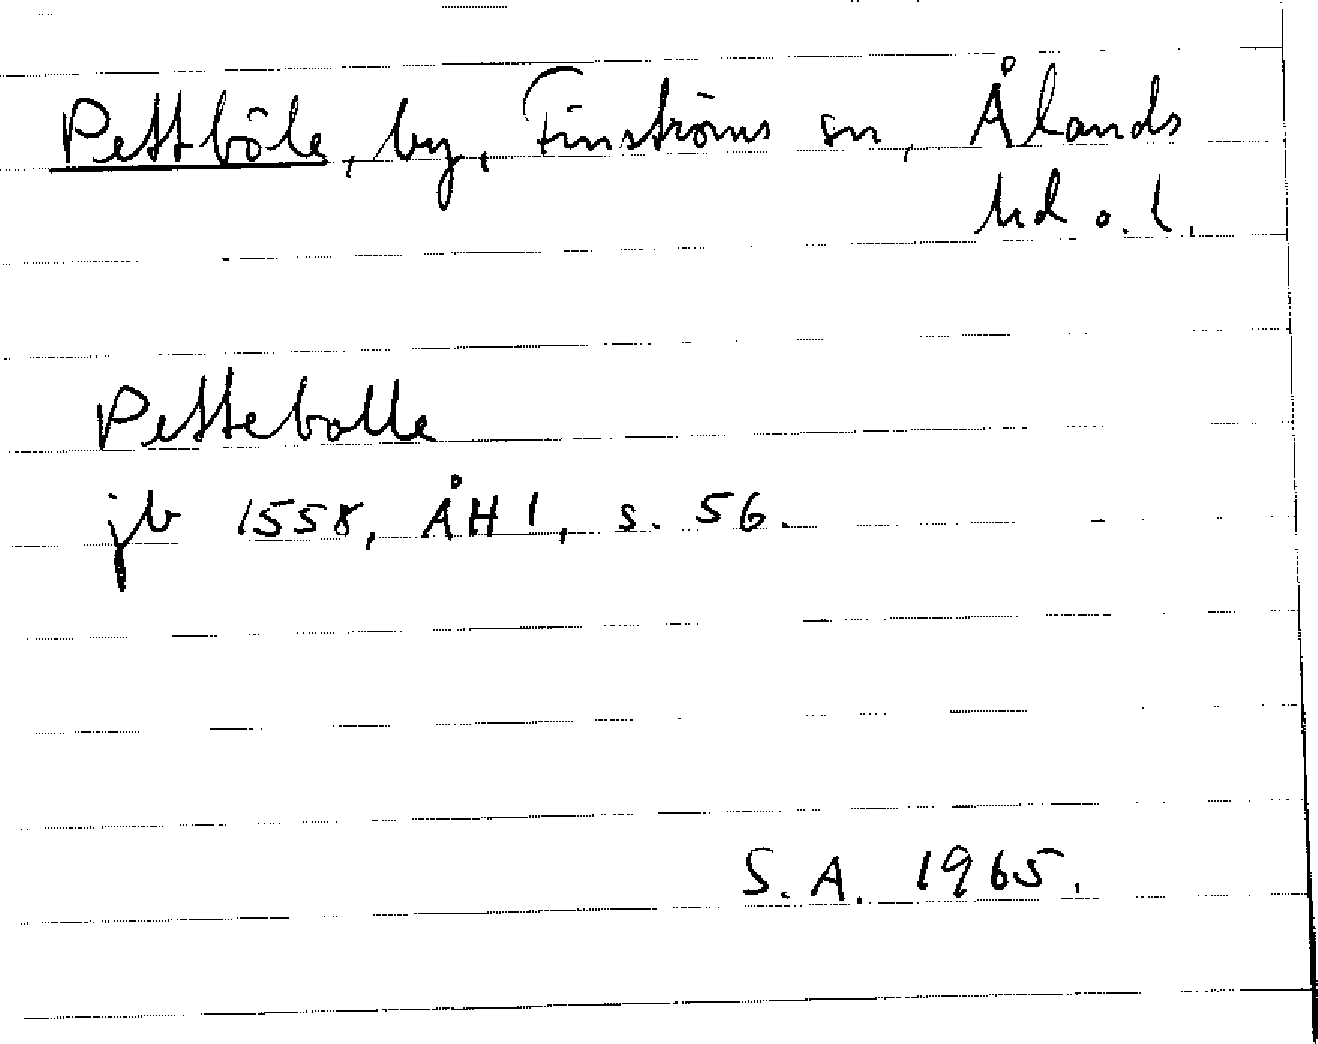 Pettböle, by, Finströms sn, Ålands
hd o. l.
Pettebolle
jb 1558, ÅH 1, s. 56.
S. A. 1965.